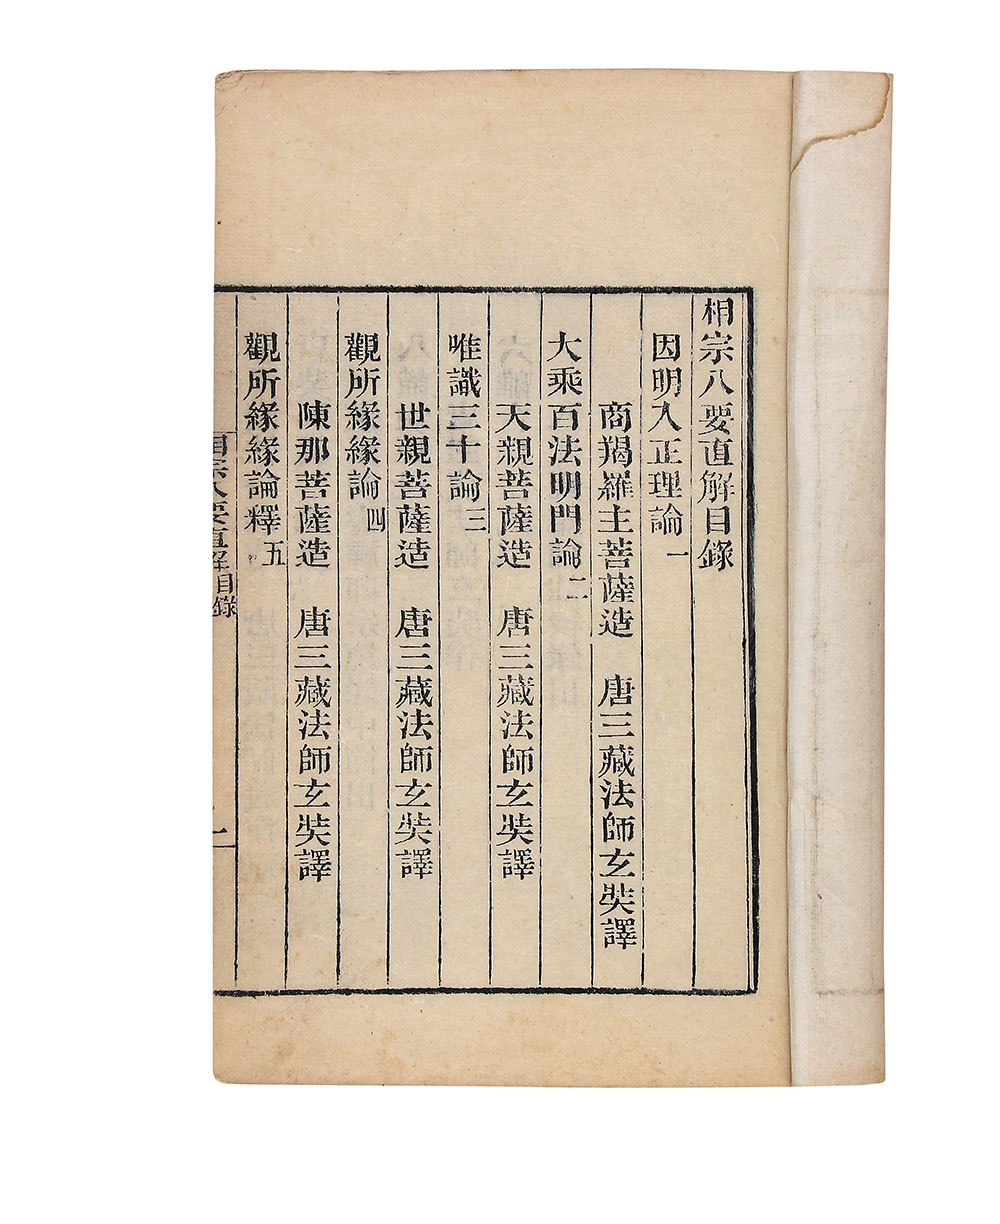 相宗八要直解目錄
因明入正理論一
商羯羅主菩薩造　唐三藏法師玄奘譯
大乘百法明門論二
天親菩薩造　唐三藏法師玄奘譯
唯識三十論三
世親菩薩造　唐三藏法師玄奘譯
觀所緣緣論四
陳那菩薩造　唐三藏法師玄奘譯
觀所緣緣論釋五
相宗八要直解目錄　一